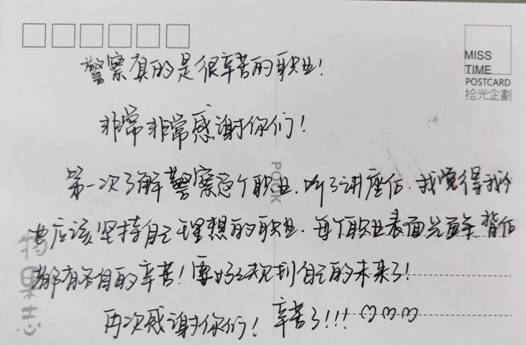 警察真的是很辛苦的职业!
MISS
TIME
POSTCARD
拾光企劃
非常非常感谢你们!
第一次了解警察这个职业.听了讲座后.我觉得我们
也应该坚持自己理想的职业.每个职业表面光鲜背后
都有各自的辛苦!要好好规划自己的未来了!
再次感谢你们!辛苦了!!!